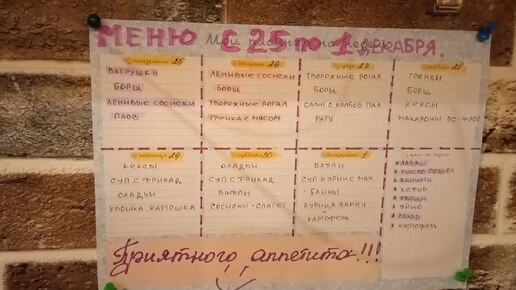 МЕНЮ С 25 по 1 ДЕКАБРЯ.
понедельник 25
ВАТРУШКИ
БОРЩ
ЛЕНИВЫЕ СОСИСКИ
ПЛОВ
вторник 26
ЛЕНИВЫЕ СОСИСКИ
БОРЩ
ТВОРОЖНЫЕ РОГАЛ
ГРЕЧКА С МЯСОМ
27
ТВОРОЖНЫЕ РОГАЛ
БОРЩ
САЛАТ С КРАБОВ ПАЛ
РАГУ
28
ГРЕНКИ
БОРЩ
КЕКСЫ
МАКАРОНЫ ПО-ФЛОТ
пятница 29
КЕКСЫ
СУП С ФРИКАД
ОЛАДЬИ
КРОШКА КАРТОШКА
суббота 30
ОЛАДЬИ
СУП С ФРИКАД
ВАФЛИ
СОСИСКИ + СПАГЕТ
воскресенье 1
ВАФЛИ
СУП КУРИН С МАК
БЛИНЫ
КУРИЦА ЗАПЕЧ
+ КАРТОФЕЛЬ
× ЛАВАШ
× МАСЛО ПОДСОЛ
× КАПУСТА
× КЕФИР
× ОВОЩИ
× ЯЙЦО
× САХАР
× КАРТОФЕЛЬ
Приятного аппетита!!!